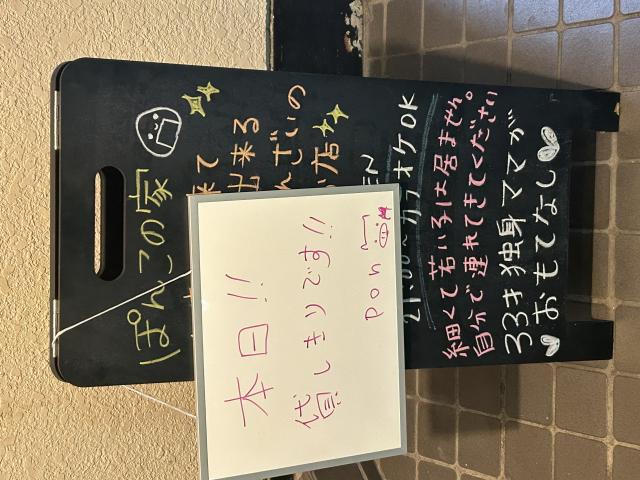 ぽんこの家
来て
出来る
んざいの
い店
本日!!
貸しきりです!!
pon
21:00〜カラオケOK
細くて若い子は居ません。
自分で連れてきてください
33才独身ママが
おもてなし